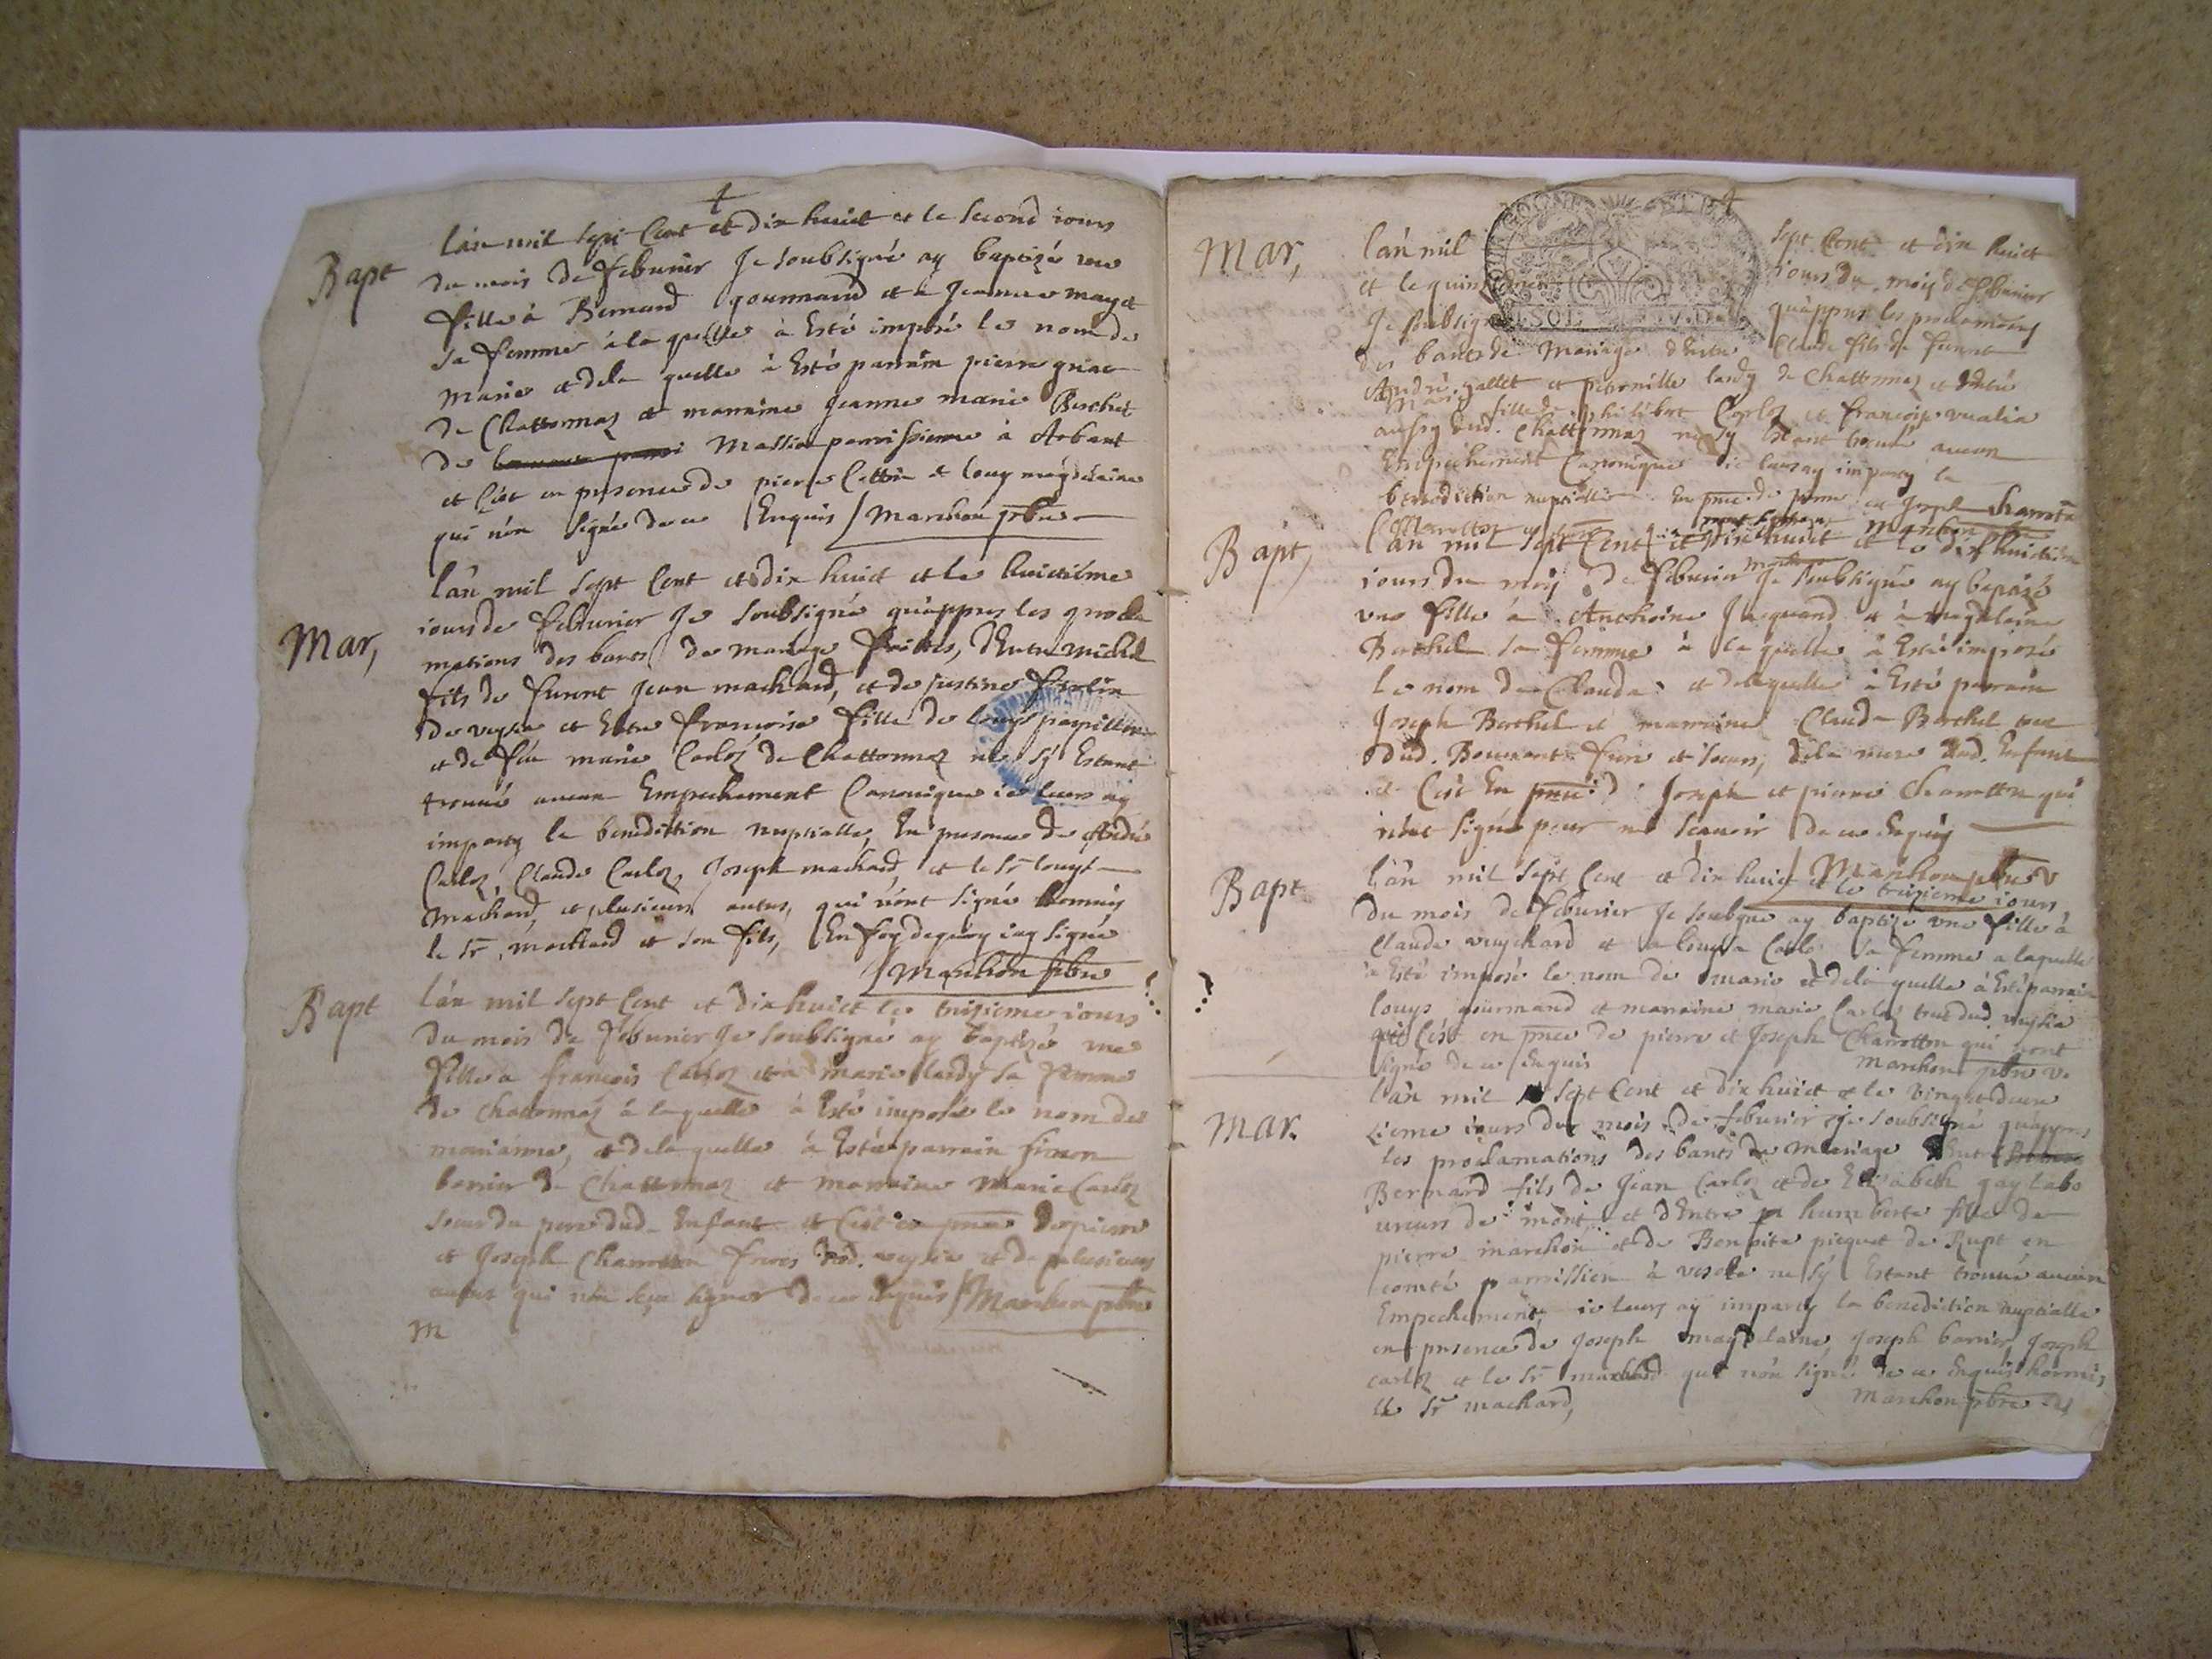 Bapt
l'an mil sept Cent et dix huict et le second iours
du mois de feburier Je soubsigné ay baptizé une
fille à Bernard gourmand et a Jeanne
sa femme à la quelle à Esté imposé le nom de
marie et dela quelle à Esté parrain pierre
de Chattonnaz et marraine Jeanne marie Berchet
de Massia parroissienne à Arbant
et Cest en presence de pierre et louy magdelaine
qui nôn signé de ce Enquis / Marchon pbre
Mar,
l'an mil sept Cent et dix huict et le huictiéme
iours de feburier Je soubsigné qu'appres les procla
mations des bants de mariage faittes, d'Entre michel
fils de funnt Jean machard, et de justine
de veysia et Entre francoise fille de louys papillon
et de fûe marie Carloz de Chattonnaz ne s'ÿ Estant
trouué aucun Empechement Canonique ie leurs ay
imparty la benediction nuptialle, En presence de André
Carloz, Claude Carloz, Joseph machard, et le sr louys
Machard, et plusieurs autres, qui n'ont signé hormis
le sr machard et son fils, En foy dequoy iay signé
/ Marchon pbre
Bapt
l'an mil sept Cent et dix huict le treizieme iours
du mois de feburier Je soubsigné ay baptizé une
fille a francois Carloz et à marie lardy sa femme
de chattonnaz à laquelle à Esté imposé le nom de
marianne, et dela quelle à Esté parrain simon
banier de Chattonnaz et marraine Marie Carloz
soeur du pere dud. Enfant et Cest en pnce de pierre
et Joseph Charrotton freres dud. veysia et de plusieurs
autres qui nôn sceu signer de ce enquis / Marchon pbre
m
Mar,
l'an mil sept Cent et dix huict
et le quinziéme iours du mois de feburier
Je soubsigné qu'appres les proclamations
des bants de Mariage d'Entre Claude fils de funnt
André gallet et petronille lardy de Chattonnaz et entre
Marie fille de philibert Carloz et francoise
aussy dud. Chattonnaz ne s'y Estant trouué aucun
Empechement Canonique ie leurs ay imparty la
benediction nuptialle En pnce de pierre et Joseph Charrotton
Marchon
Bapt,
l'an mil sept Cent et dix huict et le dix huictiéme
iours du mois de feburier Je soubsigné ay baptizé
une fille à Anthoine Jacquand et à magdelaine
Berthet sa femme à la quelle à Esté imposé
le nom de Claude et delaquelle à Esté parrain
Joseph Berthet et marraine Claude Berthet tous
dud. frere et soeurs, dela mere dud. Enfant
et Cest En pnce d Joseph et pierre Charrotton qui
n'ont signé pour ne sçauoir de ce Enquis
/ Marchon pbre v
Bapt
l'an mil sept Cent et dix huict et le treizieme iours
du mois de feburier Je soubsigné ay baptizé une fille à
Claude vuychard et a louysa Carloz sa femme a laquelle
à Esté imposé le nom de marie et dela quelle à Esté parrain
louys gourmand et marraine marie Carloz tous dud veysia
et Cest en pnce de pierre et Joseph Charrotton qui n'ont
signé de ce Enquis Marchon pbre v.
Mar.
l'an mil sept Cent et dix huict et le vingt deux
zieme iours du mois de feburier je soubsigné qu'appres
les proclamations des bants de Mariage d'Entre
Bernard fils de Jean Carloz et de Elizabeth gay labo
ureurs de mont et d'Entre humberte fille de
pierre marchon et de Benoite picquet de Rupt en
comté parroissien à vescle ne s'ÿ Estant trouué aucun
Empechement, ie leurs ay imparty la benediction nuptialle
en presence de Joseph magdelaine, Joseph banier, Joseph
carloz et le sr machard qui nôn signé de ce Enquis hormis
le sr machard, Marchon pbre